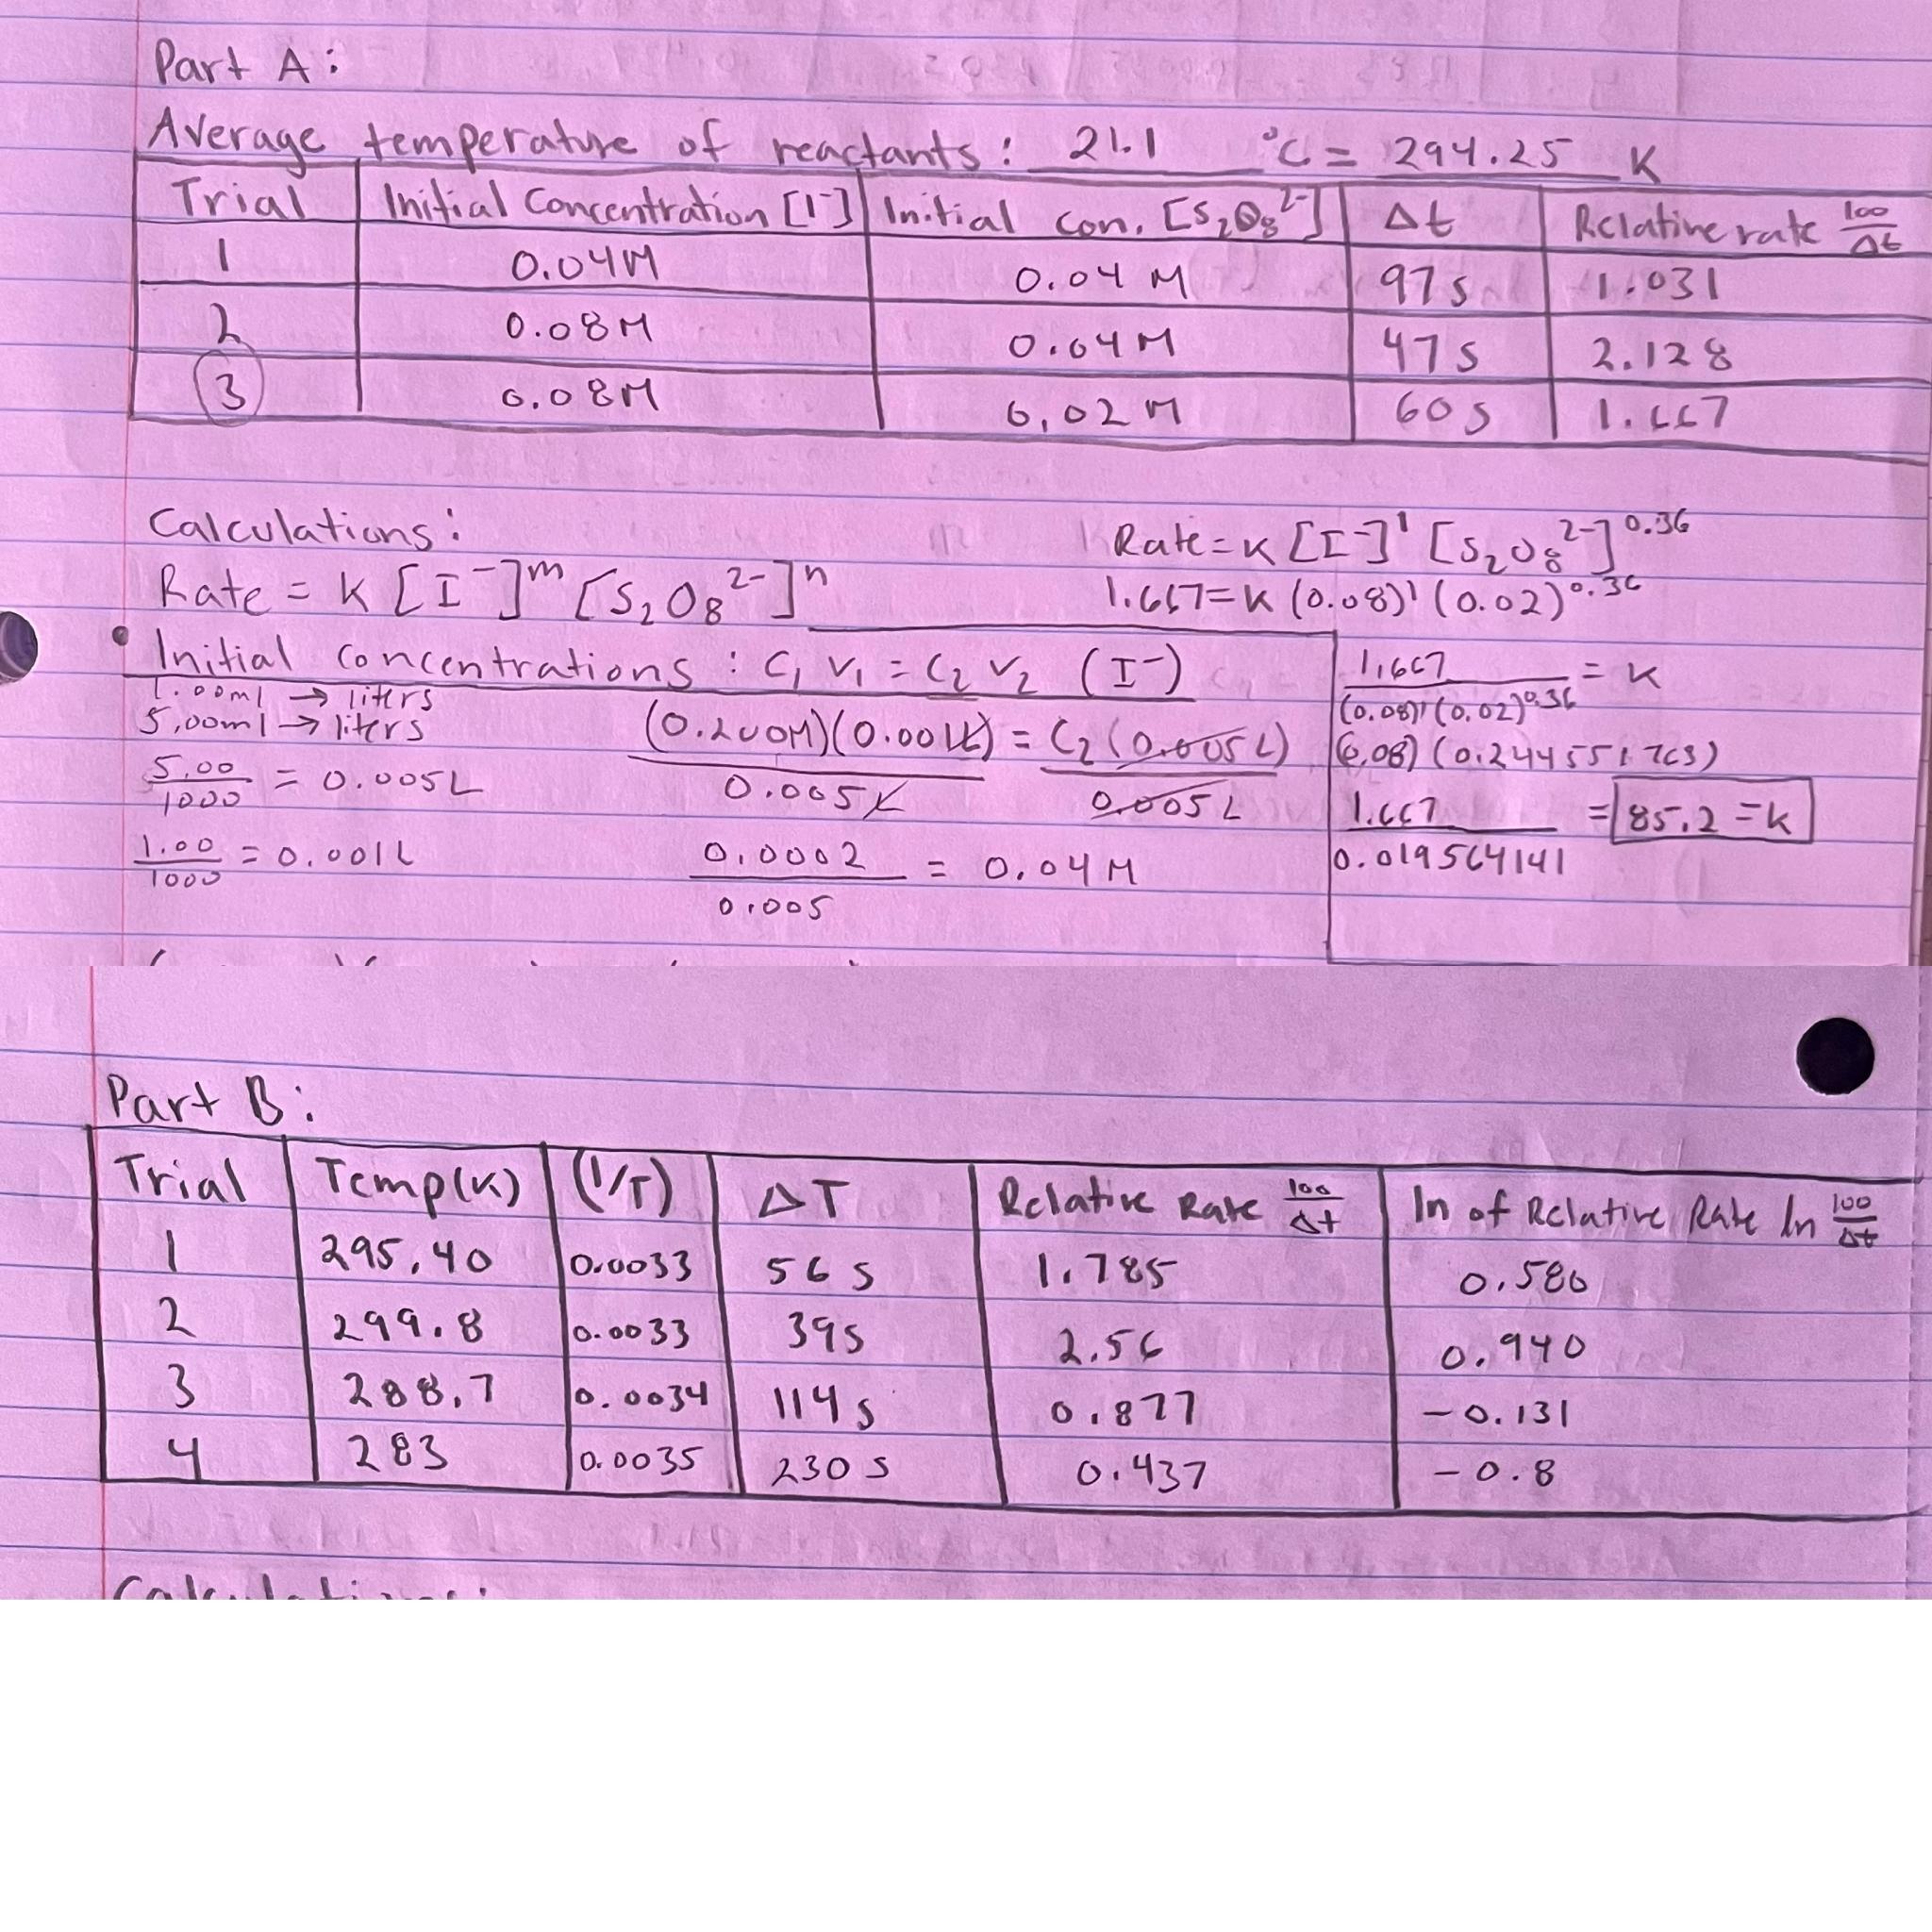 Part A:
Average temperature of reactants: 21.1 °C = 294.25 K
Trial Initial Concentration [I⁻] Initial con. [S₂O₈²⁻] Δt Relative rate 100/Δt
1 0.04M 0.04 M 97s 1.031
2 0.08M 0.04M 47s 2.128
3 0.08M 0.02 M 60s 1.667
Calculations:
Rate = K [I⁻]ᵐ [S₂O₈²⁻]ⁿ
Rate = K [I⁻]¹ [S₂O₈²⁻]^0.36
1.667 = K (0.08)¹ (0.02)^0.36
• Initial concentrations: C₁V₁ = C₂V₂ (I⁻)
1.00ml → liters
5.00ml → liters
5.00/1000 = 0.005L
1.00/1000 = 0.001L
(0.200M)(0.001L) = C₂(0.005L)
0.005L 0.005L
0.0002/0.005 = 0.04M
1.667/(0.08)¹(0.02)^0.36 = K
(0.08)(0.244551763)
1.667/0.019564141 = 85.2 = K
Part B:
Trial Temp(K) (1/T) ΔT Relative Rate 100/Δt ln of Relative Rate ln 100/Δt
1 295.40 0.0033 56s 1.785 0.580
2 299.8 0.0033 39s 2.56 0.940
3 288.7 0.0034 114s 0.877 -0.131
4 283 0.0035 230s 0.437 -0.8